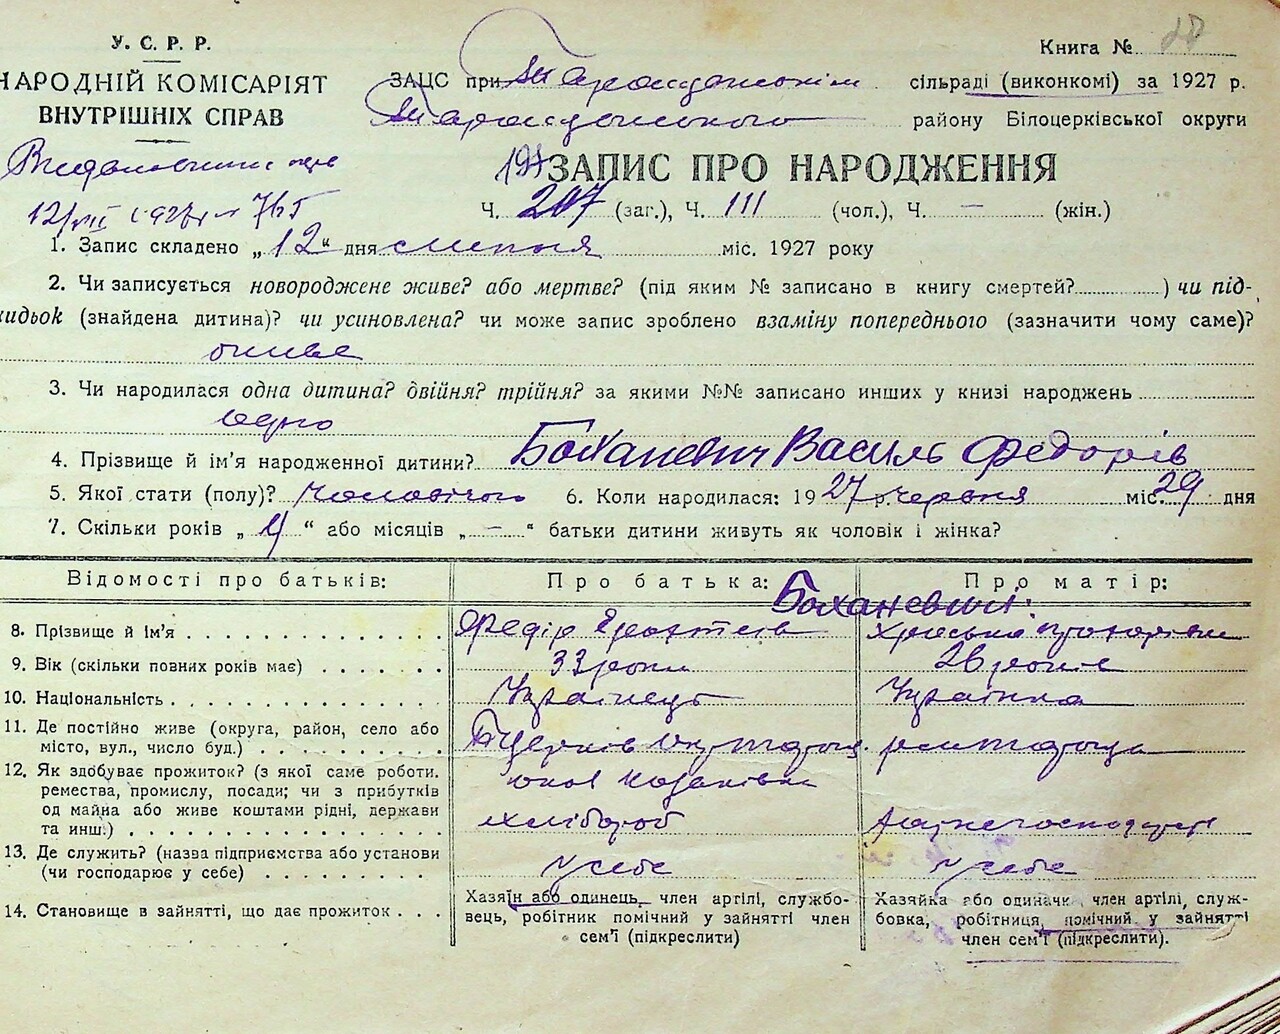 У. С. Р. Р.
НАРОДНІЙ КОМІСАРІЯТ
ВНУТРІШНІХ СПРАВ
Книга №
ЗАЦС при Таращанскім сільраді (виконкомі) за 1927 р.
Таращанського району Білоцерківської округи
ЗАПИС ПРО НАРОДЖЕННЯ
12/VII 1927 р № 765
Ч. 207 (заг.), Ч. 111 (чол.), Ч. — (жін.)
1. Запис складено „12“ дня липня міс. 1927 року
2. Чи записується новороджене живе? або мертве? (під яким № записано в книгу смертей?) чи під-
кидьок (знайдена дитина)? чи усиновлена? чи може запис зроблено взаміну попереднього (зазначити чому саме)?
живе
3. Чи народилася одна дитина? двійня? трійня? за якими №№ записано инших у книзі народжень
одно
4. Прізвище й ім'я народженної дитини? Боханевич Василь Федорів
5. Якої стати (полу)? чоловічого 6. Коли народилася: 1927 р. червня міс. 29 дня
7. Скільки років „4“ або місяців „—“ батьки дитини живуть як чоловік і жінка?
Відомості про батьків: Про батька: Про матір:
Боханевичі
8. Прізвище й ім'я Федір
9. Вік (скільки повних років має) 33 роки 26 років
10. Національність Українець Українка
11. Де постійно живе (округа, район, село або
місто, вул., число буд.)
12. Як здобуває прожиток? (з якої саме роботи,
ремества, промислу, посади; чи з прибутків
од майна або живе коштами рідні, держави
та инш.) хлібороб
13. Де служить? (назва підприємства або установи
(чи господарює у себе) у себе у себе
14. Становище в зайнятті, що дає прожиток
Хазяїн або одинець, член артілі, службо-
вець, робітник помічний у зайнятті член
сем'ї (підкреслити)
Хазяйка або одиначк член артілі, служ-
бовка, робітниця, помічний у зайнятті
член сем'ї (підкреслити).